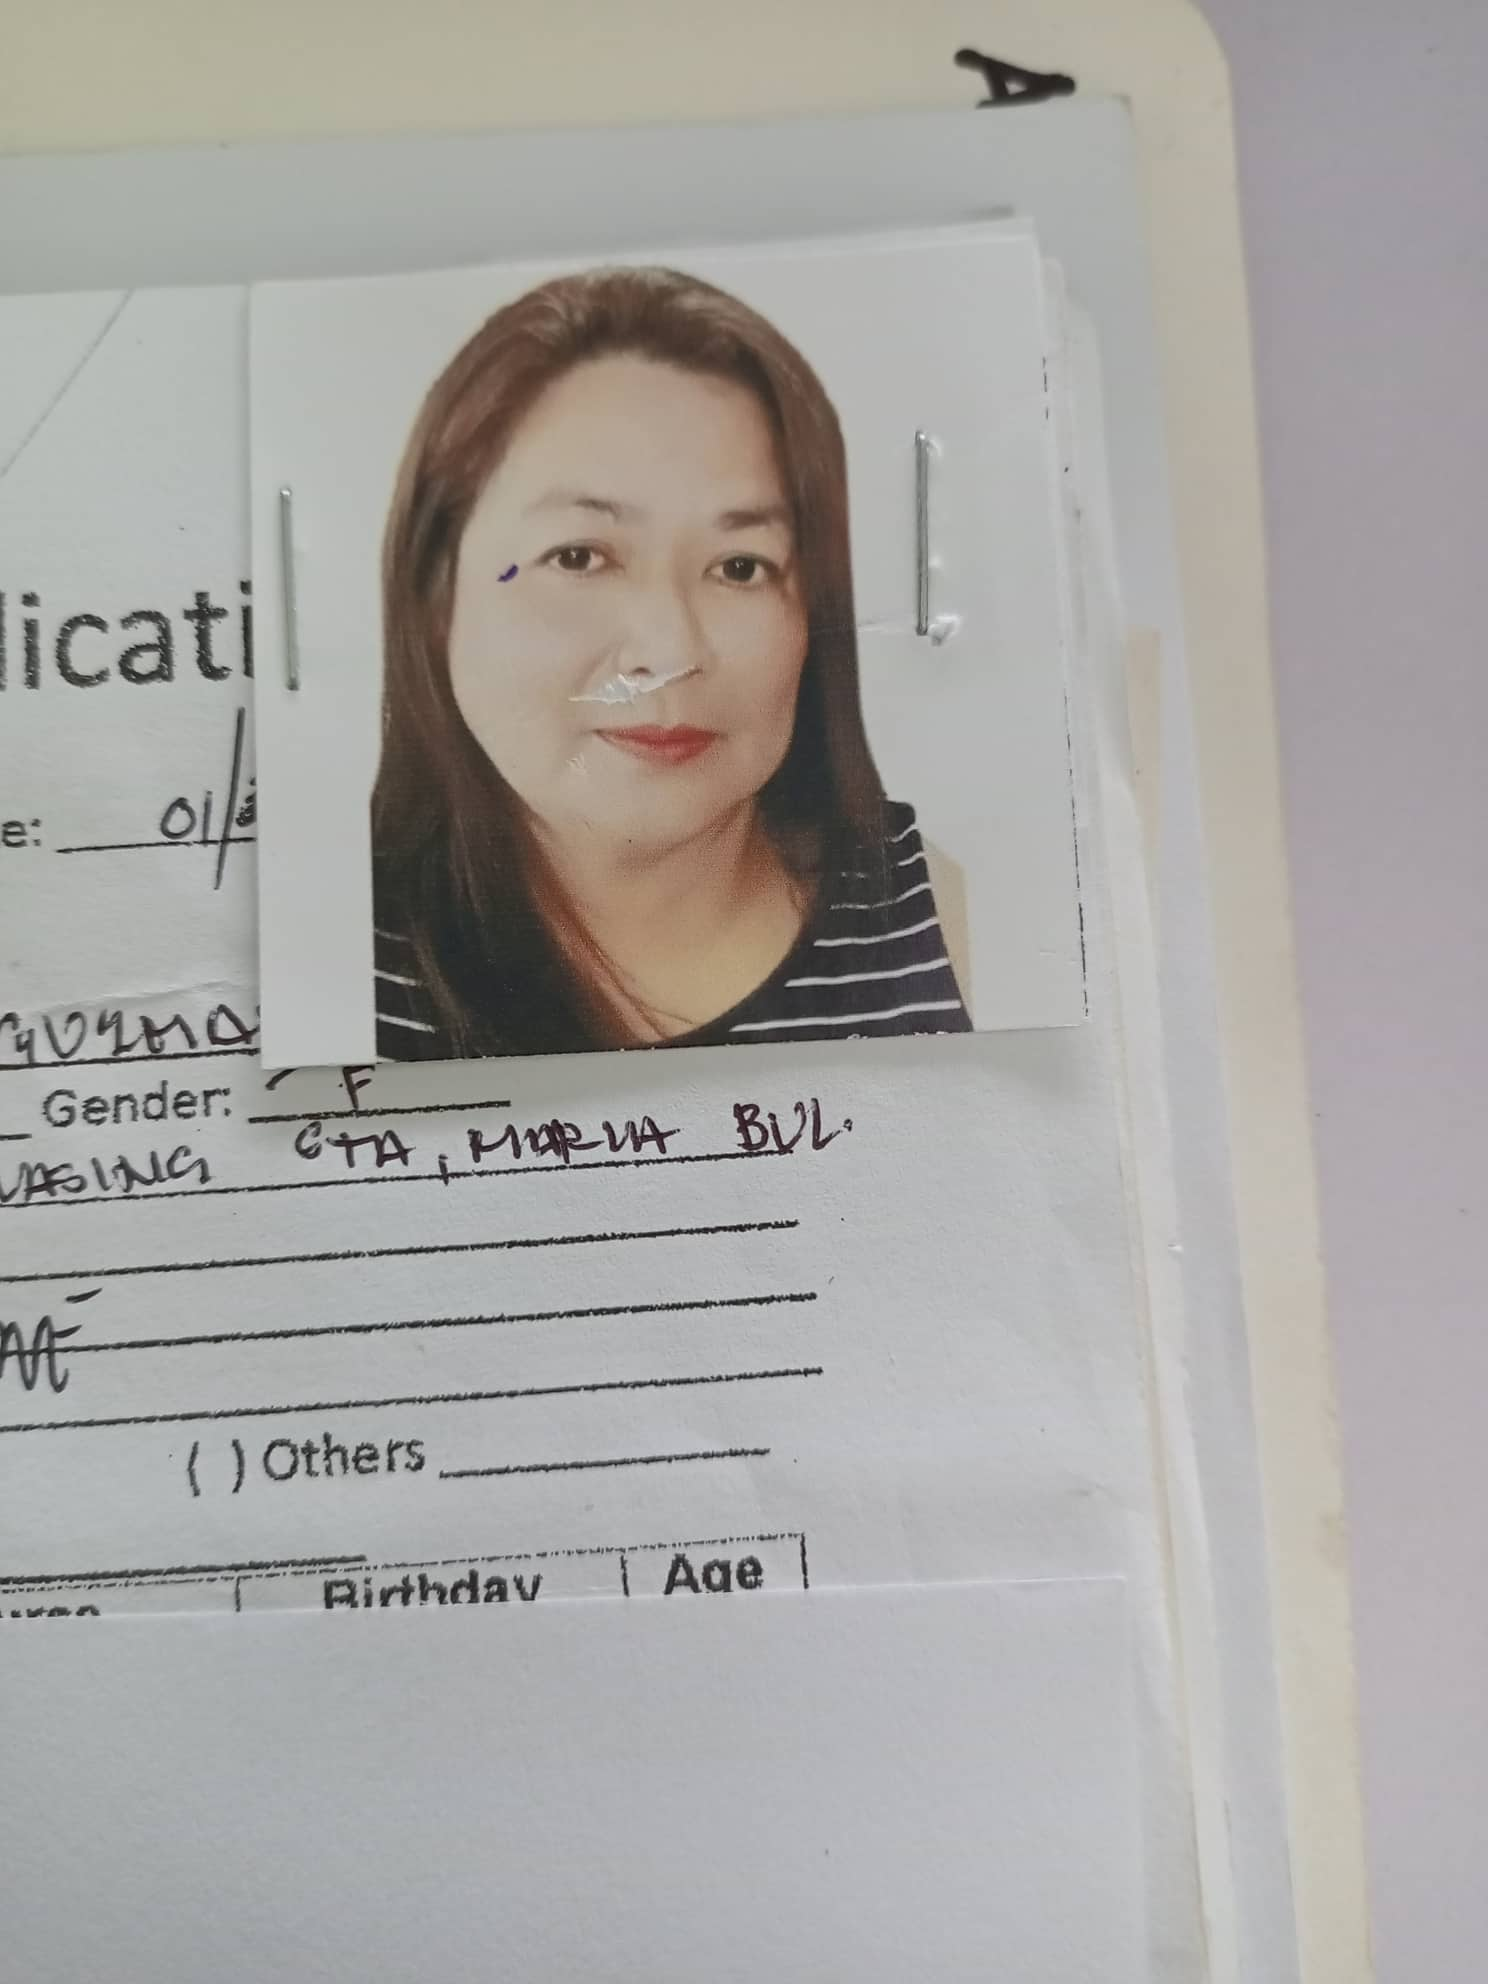 A
licati
e: 01/
GUZMA
Gender: F
STA, MARIA BUL.
( ) Others
Birthday Age